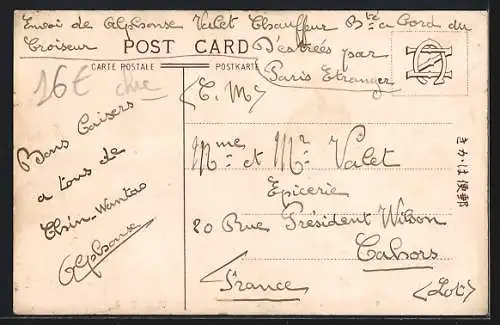 Envoi de Alphonse Valet Chauffeur Bté a bord du
Croiseur
D'estrées par
Paris Etranger
POST CARD
CARTE POSTALE
POSTKARTE
16€
(T. M)
Bons Baisers
a tous de
Chin-Wantao
Alphonse
Mme et Mr Valet
Epicerie
20 Rue Président Wilson
Cahors
(Lot)
France
きかは便郵